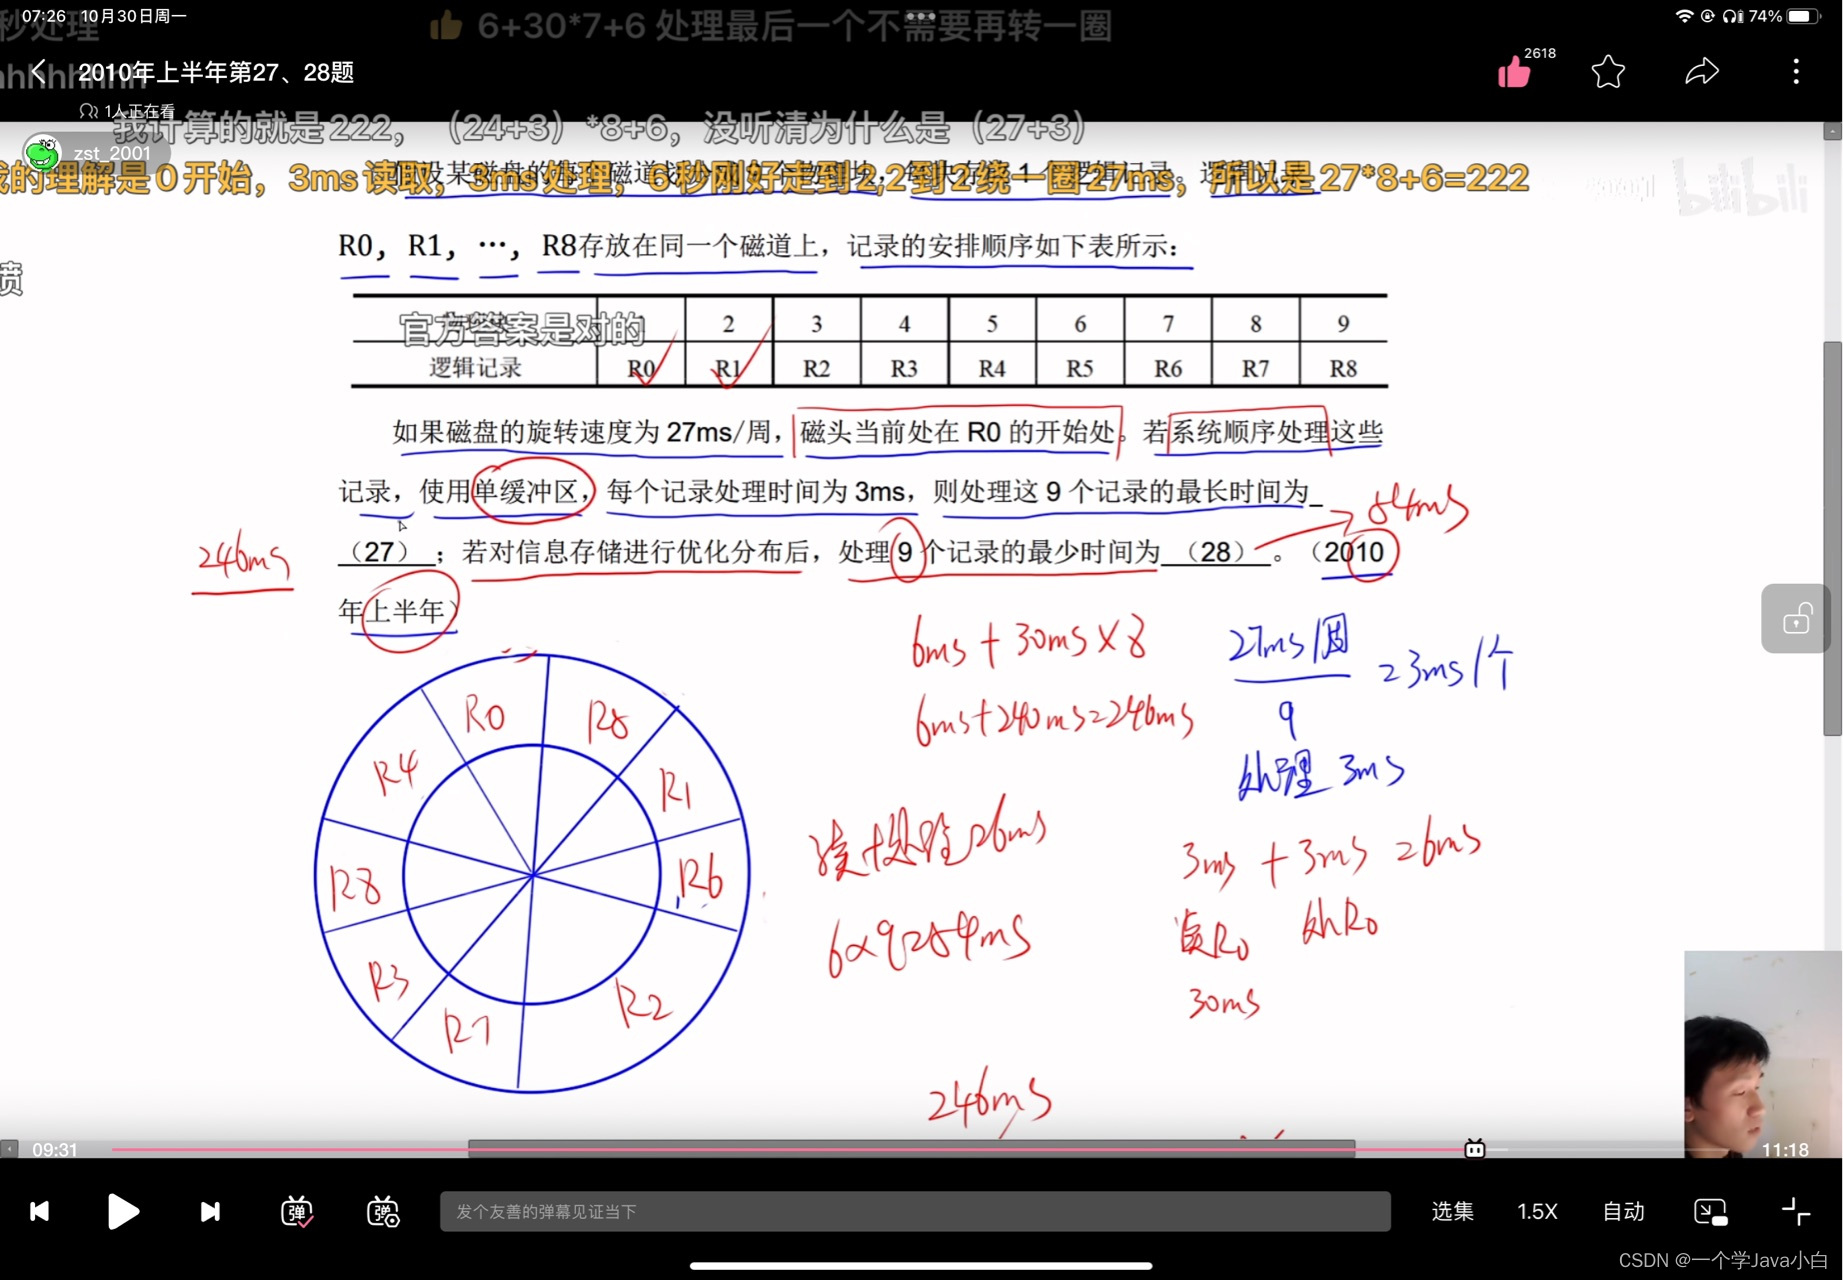 07:26 10月30日周一
74%
秒处理
6+30*7+6 处理最后一个不需要再转一圈
2010年上半年第27、28题
2618
1人正在看
我计算的就是222，（24+3）*8+6，没听清为什么是（27+3）
zst_2001
我的理解是0开始，3ms读取，3ms处理，6秒刚好走到2,2到2绕一圈27ms，所以是27*8+6=222
bilibili
R0，R1，…，R8存放在同一个磁道上，记录的安排顺序如下表所示：
喷
官方答案是对的
2 3 4 5 6 7 8 9
逻辑记录 R0 R1 R2 R3 R4 R5 R6 R7 R8
如果磁盘的旋转速度为27ms/周，磁头当前处在R0的开始处。若系统顺序处理这些
记录，使用单缓冲区，每个记录处理时间为3ms，则处理这9个记录的最长时间为_
54ms
246ms
（27）；若对信息存储进行优化分布后，处理9个记录的最少时间为（28）。（2010
年上半年）
6ms + 30ms × 8
6ms+240ms=246ms
27ms/周
9
=3ms/个
处理 3ms
R0
R5
R4
R1
R8
R6
R3
R2
R7
读+处理=6ms
6×9=54ms
3ms + 3ms =6ms
读R0 处R0
30ms
246ms
09:31
11:18
弹
弹
发个友善的弹幕见证当下
选集
1.5X
自动
CSDN @一个学Java小白